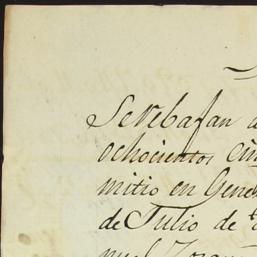 Se rebafan
ochocientos cin
mitio en Gene
de Julio de